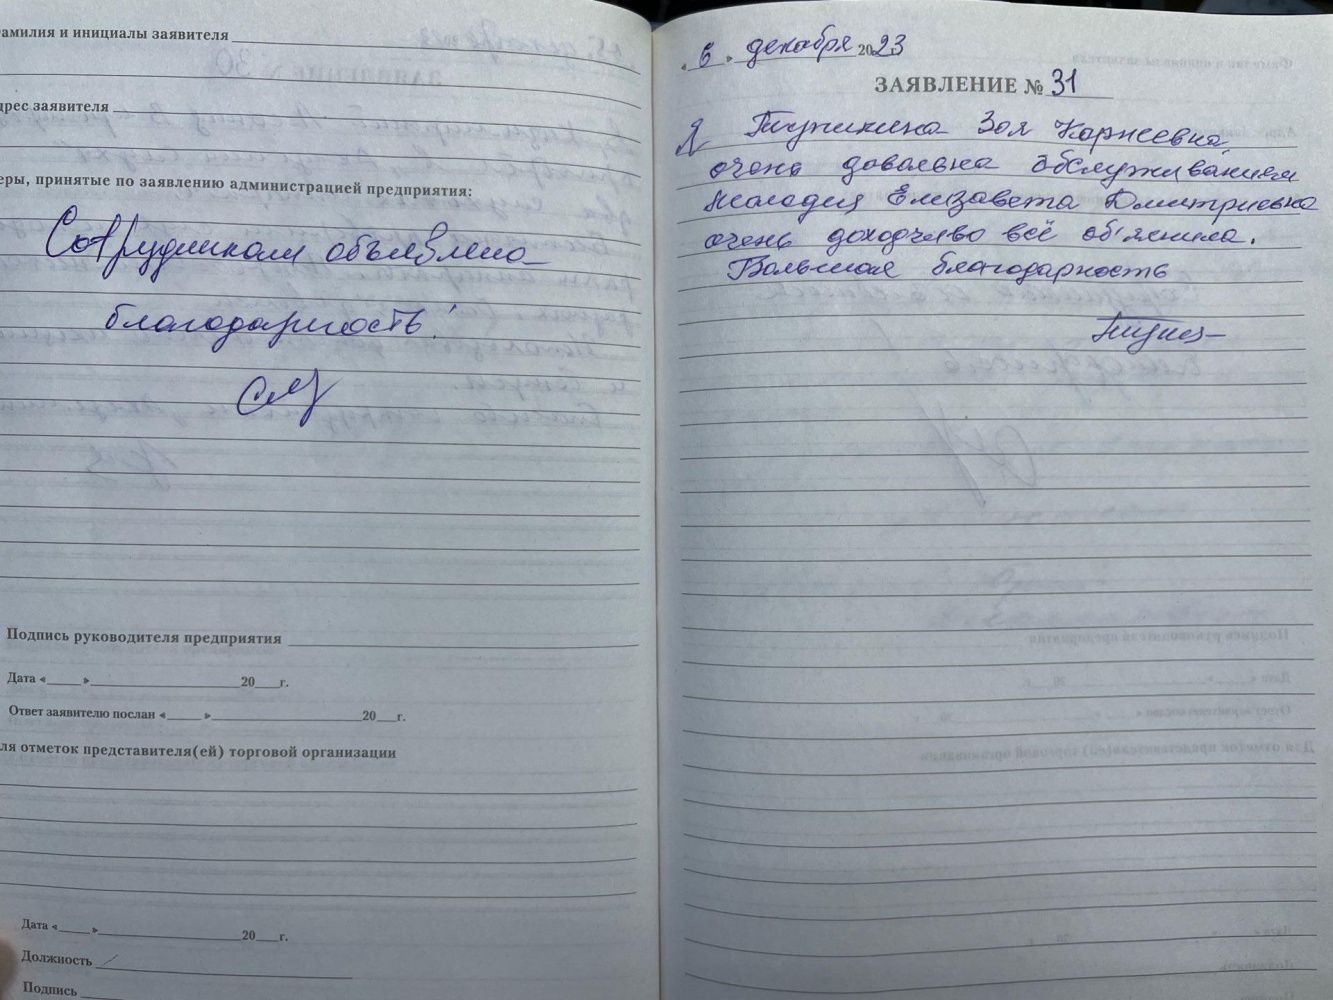 амилия и инициалы заявителя
дрес заявителя
еры, принятые по заявлению администрацией предприятия:
Сотрудникам объявлена
благодарность!
Подпись руководителя предприятия
Дата «___»____________20___г.
Ответ заявителю послан «___»____________20___г.
ля отметок представителя(ей) торговой организации
Дата «___»____________20___г.
Должность
Подпись
«6» декабря 2023
ЗАЯВЛЕНИЕ № 31
Я Зоя Карнеевна,
очень давольна обслуживанием
Молодец Елизавета Дмитриевна
очень доходчиво всё обяснила.
Большая благодарность